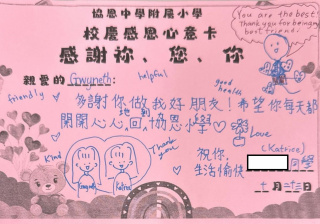 協恩中學附屬小學
校慶感恩心意卡
感謝祢、您、你
You are the best!
Thank you for being my
best friend!
親愛的 Gwyneth:
helpful
good health
friendly
多謝你做我好朋友！希望你每天都
開開心心地回到協恩小學
Love
Kind
Thank you
Gwyneth
Katrice
祝你,
生活愉快
(Katrice)
同學
十月二十三日